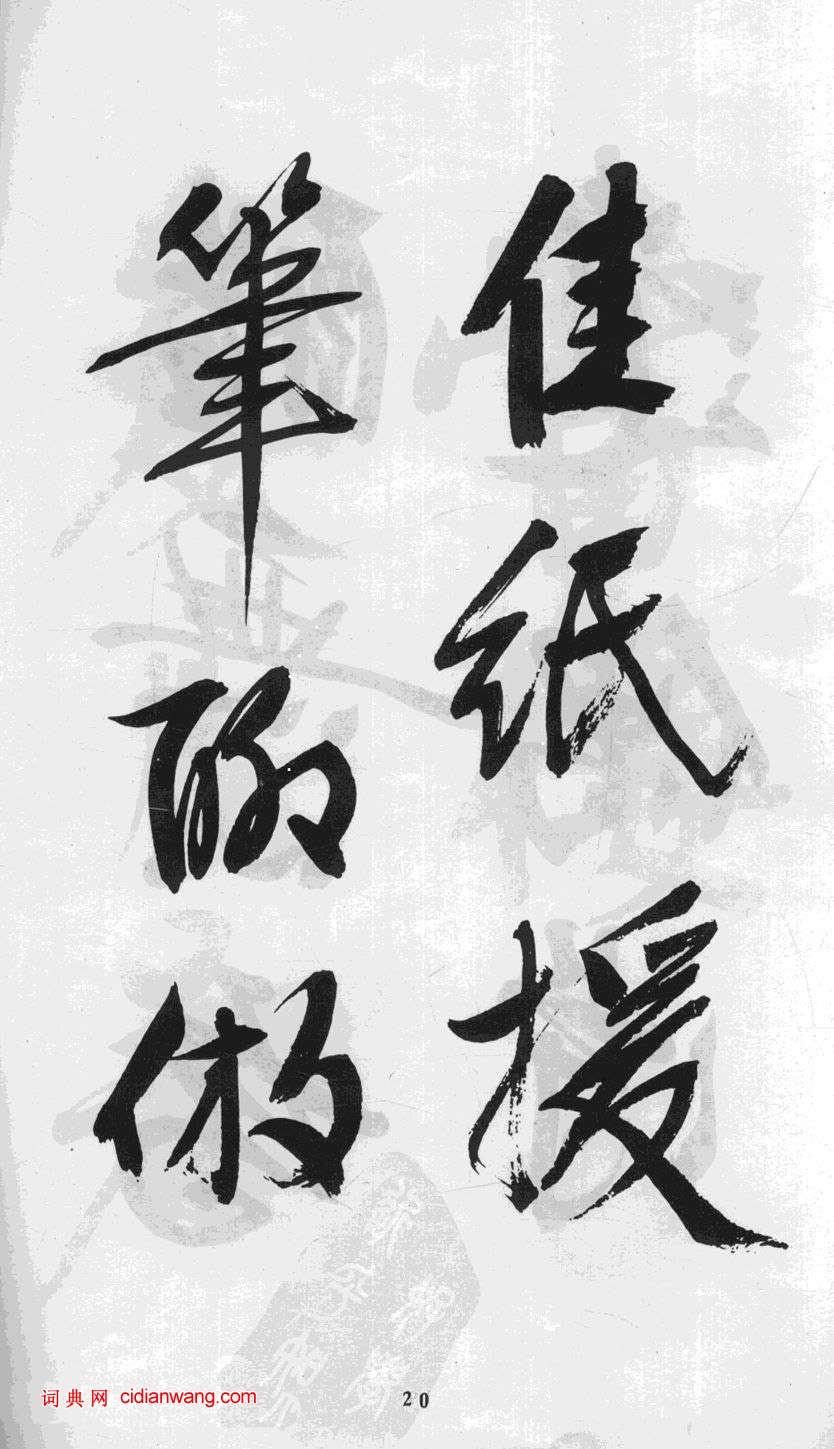 佳紙援
筆聊倣
词典网 cidianwang.com
20